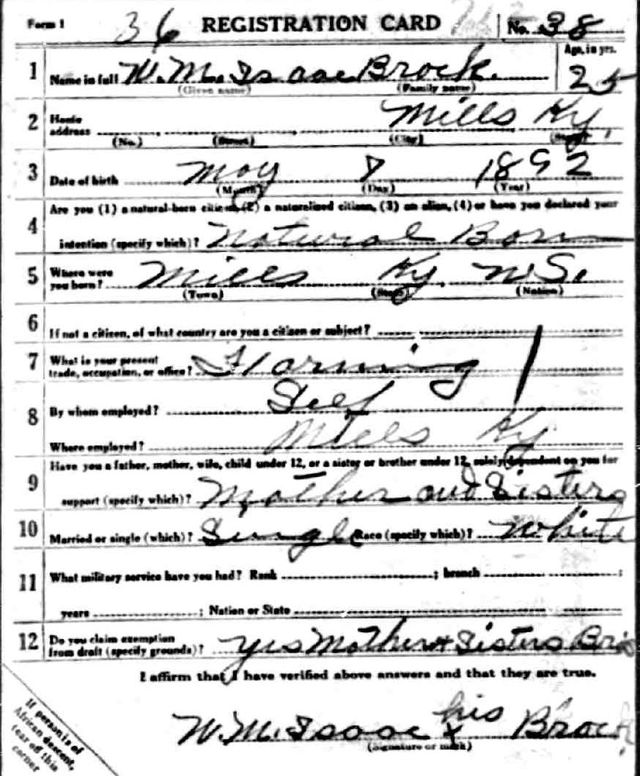 Form 1 36 REGISTRATION CARD No. 38
1 Name in full W. M. Isaac Brock. Age, in yrs. 25
(Given name) (Family name)
2 Home address Mills Ky.
(No.) (Street) (City) (State)
3 Date of birth May 8 1892
(Month) (Day) (Year)
4 Are you (1) a natural-born citizen, (2) a naturalized citizen, (3) an alien, (4) or have you declared your
intention (specify which)? Natural Born
5 Where were you born? Mills Ky
(Town) (State) (Nation)
6 If not a citizen, of what country are you a citizen or subject?
7 What is your present trade, occupation, or office? Farming
8 By whom employed? Self
Where employed? Mills Ky
9 Have you a father, mother, wife, child under 12, or a sister or brother under 12, solely dependent on you for
support (specify which)? Mother and Sisters
10 Married or single (which)? Single Race (specify which)? White
11 What military service have you had? Rank ; branch ;
years ; Nation or State
12 Do you claim exemption from draft (specify grounds)? yes Mother & Sisters
I affirm that I have verified above answers and that they are true.
W. M. Isaac his x Brock
(Signature or mark)
If person is of
African descent,
tear off this
corner